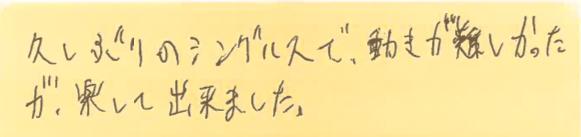 久しぶりのシングルスで、動きが難しかった
が、楽して出来ました。